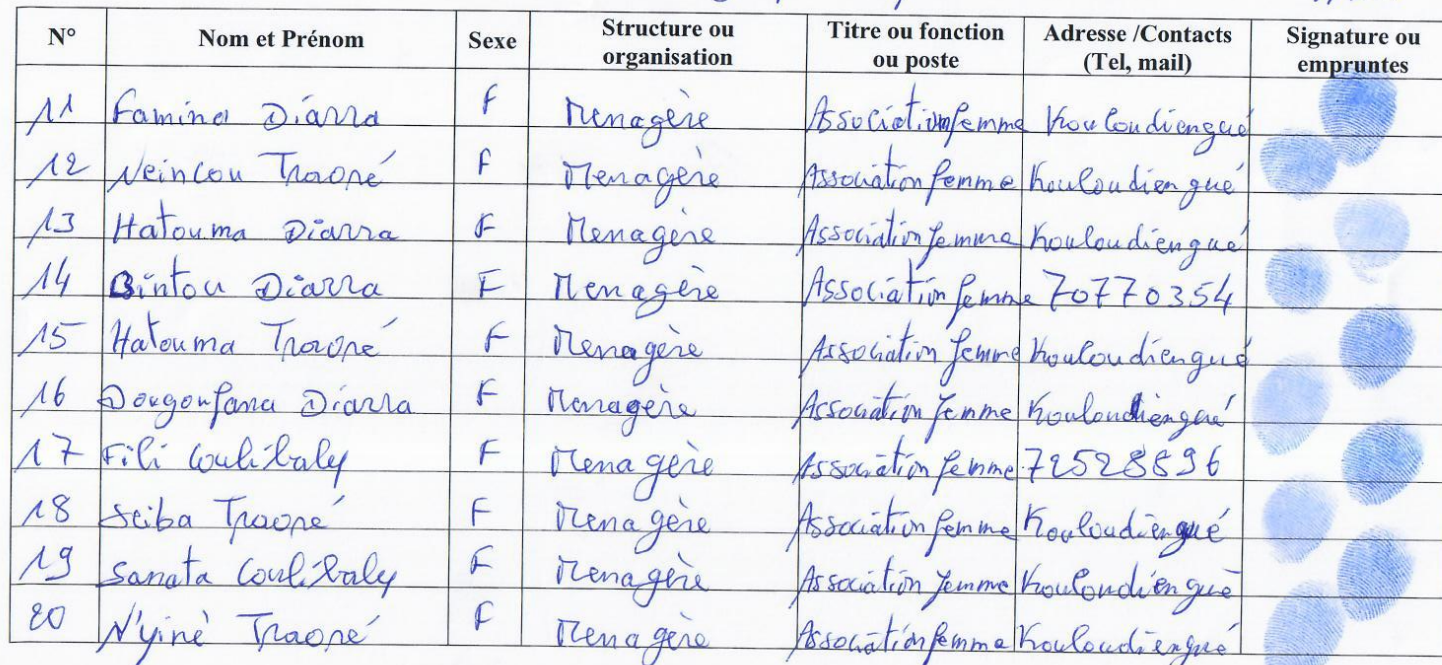 N° Nom et Prénom Sexe Structure ou organisation Titre ou fonction ou poste Adresse /Contacts (Tel, mail) Signature ou empruntes
11 Famina Diarra F Menagère Association femme Kouloudiengué
12 Neincou Traoré F Menagère Association femme Kouloudiengué
13 Hatouma Diarra F Menagère Association femme Kouloudiengué
14 Bintou Diarra F Menagère Association femme 70770354
15 Hatouma Traoré F Menagère Association femme Kouloudiengué
16 Dougoufana Diarra F Menagère Association femme Kouloudiengué
17 Fili Coulibaly F Menagère Association femme 72528896
18 Seiba Traoré F Menagère Association femme Kouloudiengué
19 Sanata Coulibaly F Menagère Association femme Kouloudiengué
20 N'yinè Traoré F Menagère Association femme Kouloudiengué